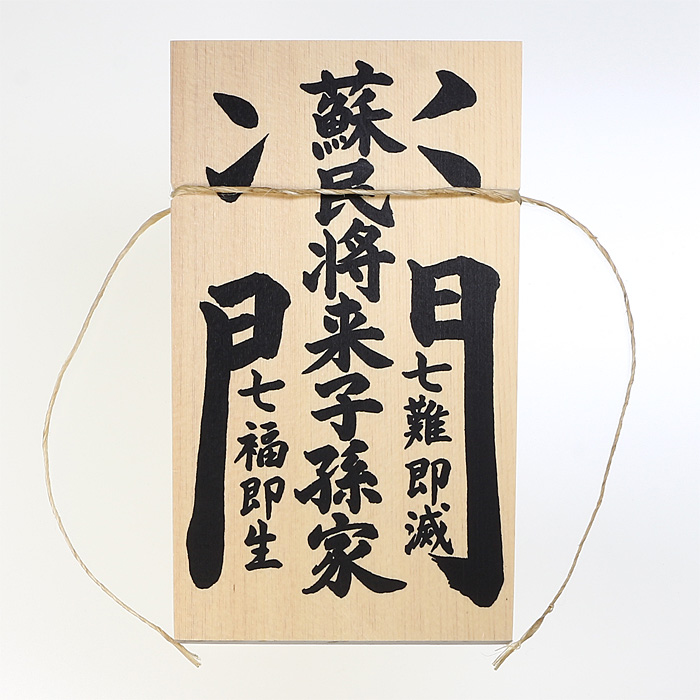 蘇民将来子孫家門
七難即滅
七福即生